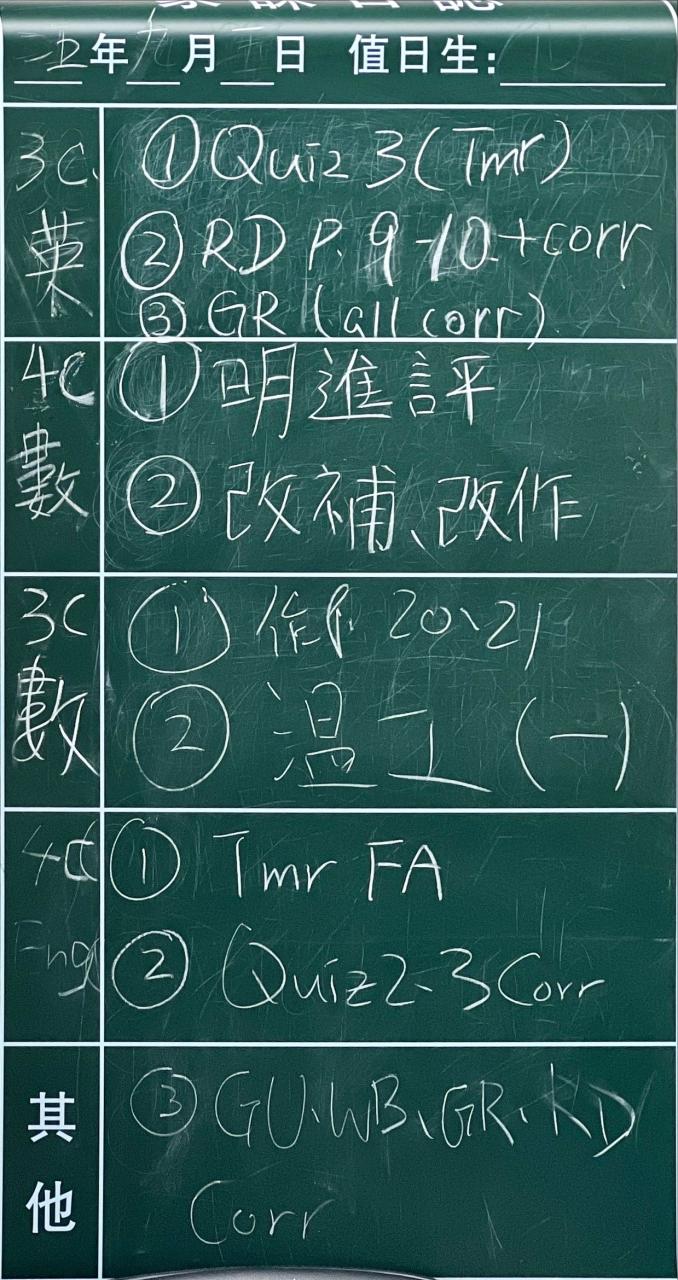 家課日誌
年九月日 值日生:
3C ① Quiz 3 (Tmr)
英 ② RD P. 9-10 + corr
③ GR (all corr)
4C ① 明進評
數 ② 改補、改作
3C ① 作P. 20、21
數 ② 溫工(一)
4C ① Tmr FA
Eng ② Quiz 2、3 Corr
其他 ③ GU、WB、GR、RD
Corr